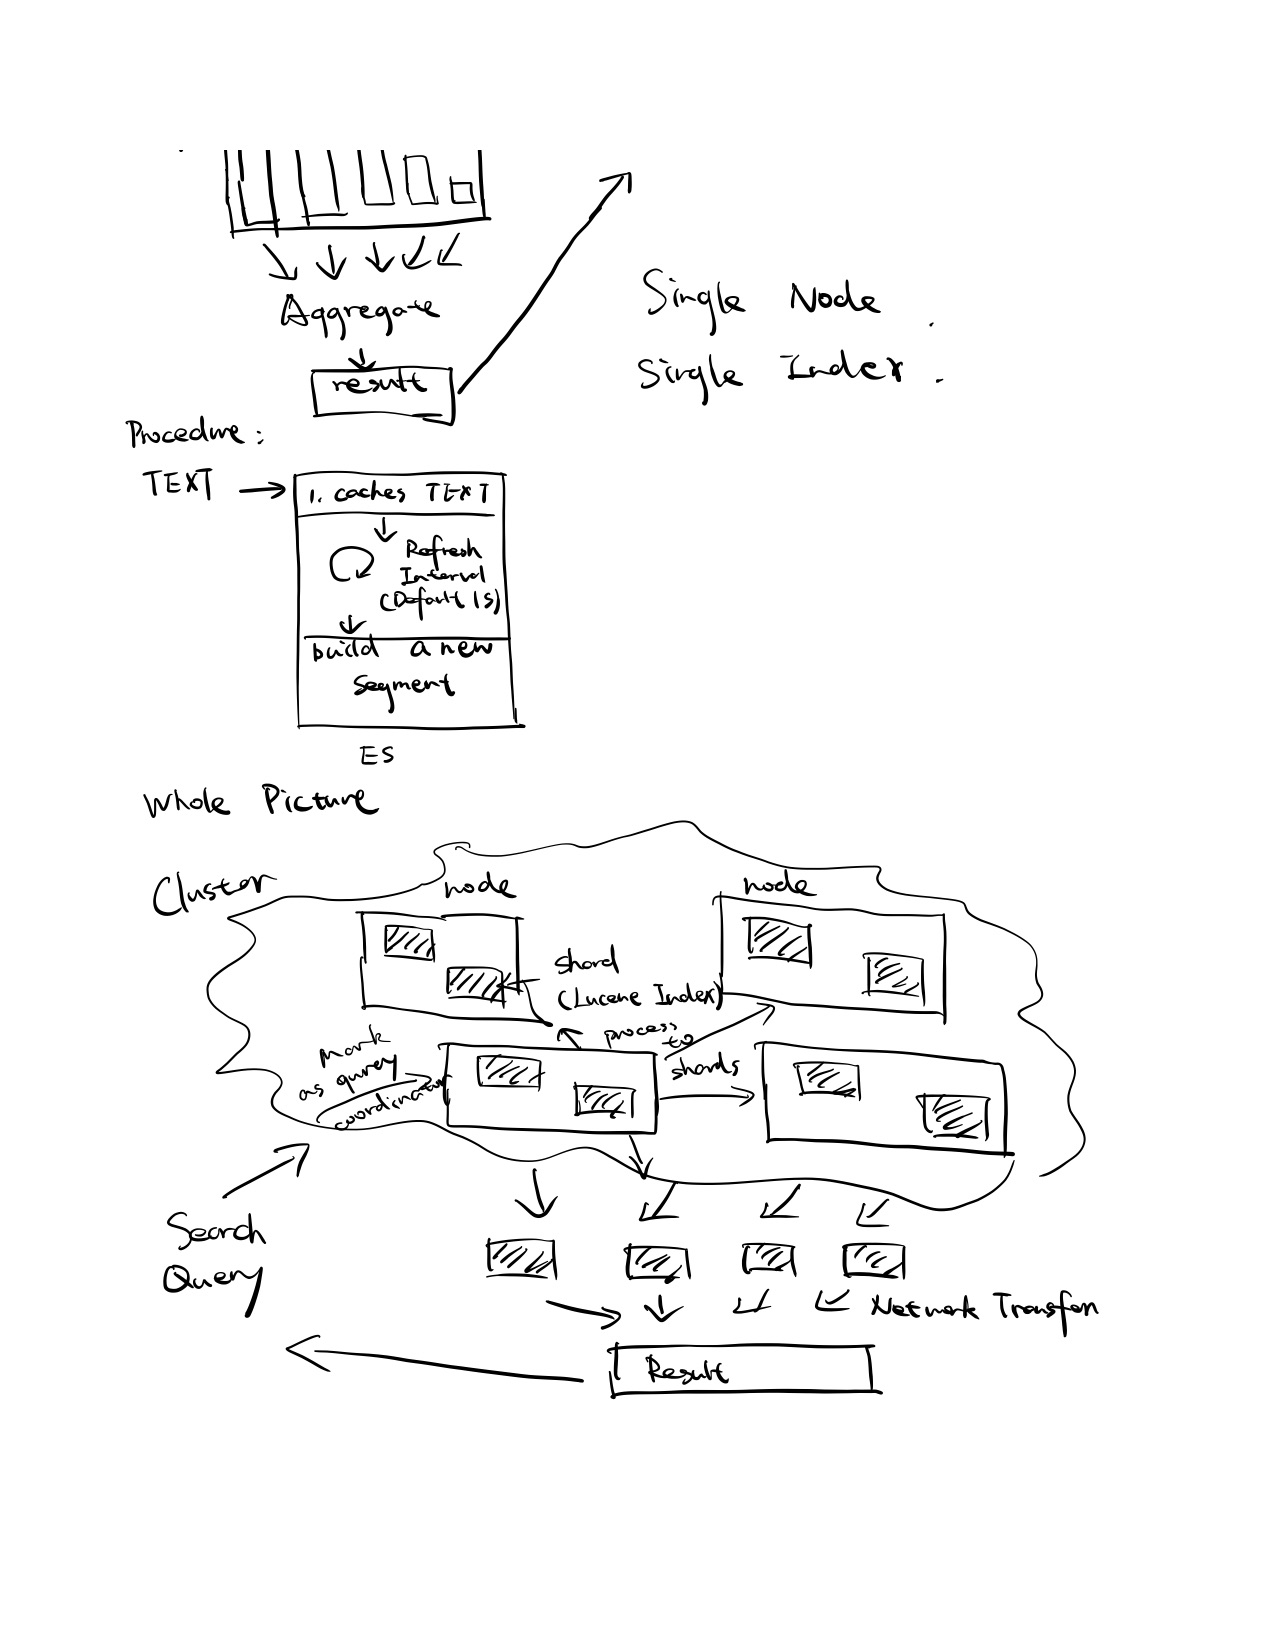 Aggregate
result
Single Node.
Single Index.
Procedure:
TEXT
1. caches TEXT
Refresh
Interval
(Default 1s)
build a new
segment
ES
Whole Picture
Cluster
node
node
shard
(Lucene Index)
process
to
shards
Mark
as qurey
coordinator
Search
Query
Network Transfer
Result